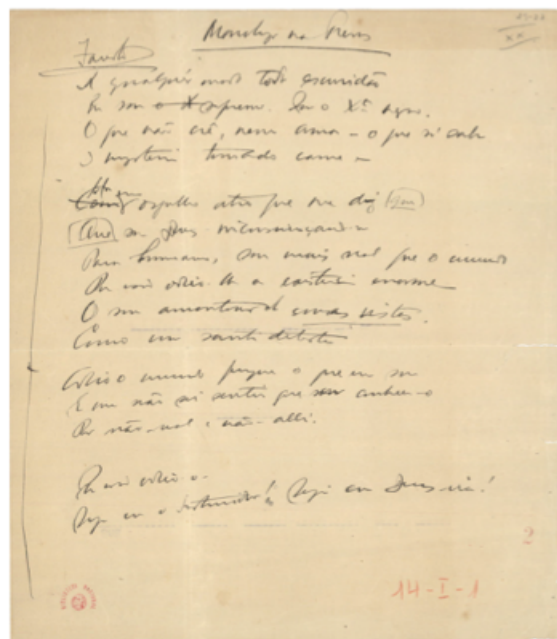 Monologo nas Trevas
Fausto
A qualquer modo todo escuridão
Eu sou supremo. Sou o X° negro.
O que não crê, nem ama — o que só sabe
O mysterio tornado carne —
orgulho atro que me diz
Que sou Deus
Para humano, sou mais real que o mundo
Por isso odeio-lhe a existencia enorme
O seu amontoar de cousas vistas.
Como um santo
Odeio o mundo porque o que eu sou
E que não sei sentir que sou conhece-o
Por não-real e não-alli.
Por isso odeio-o —
Seja eu o destruidor! Seja eu Deus-ira!
2
14-I-1